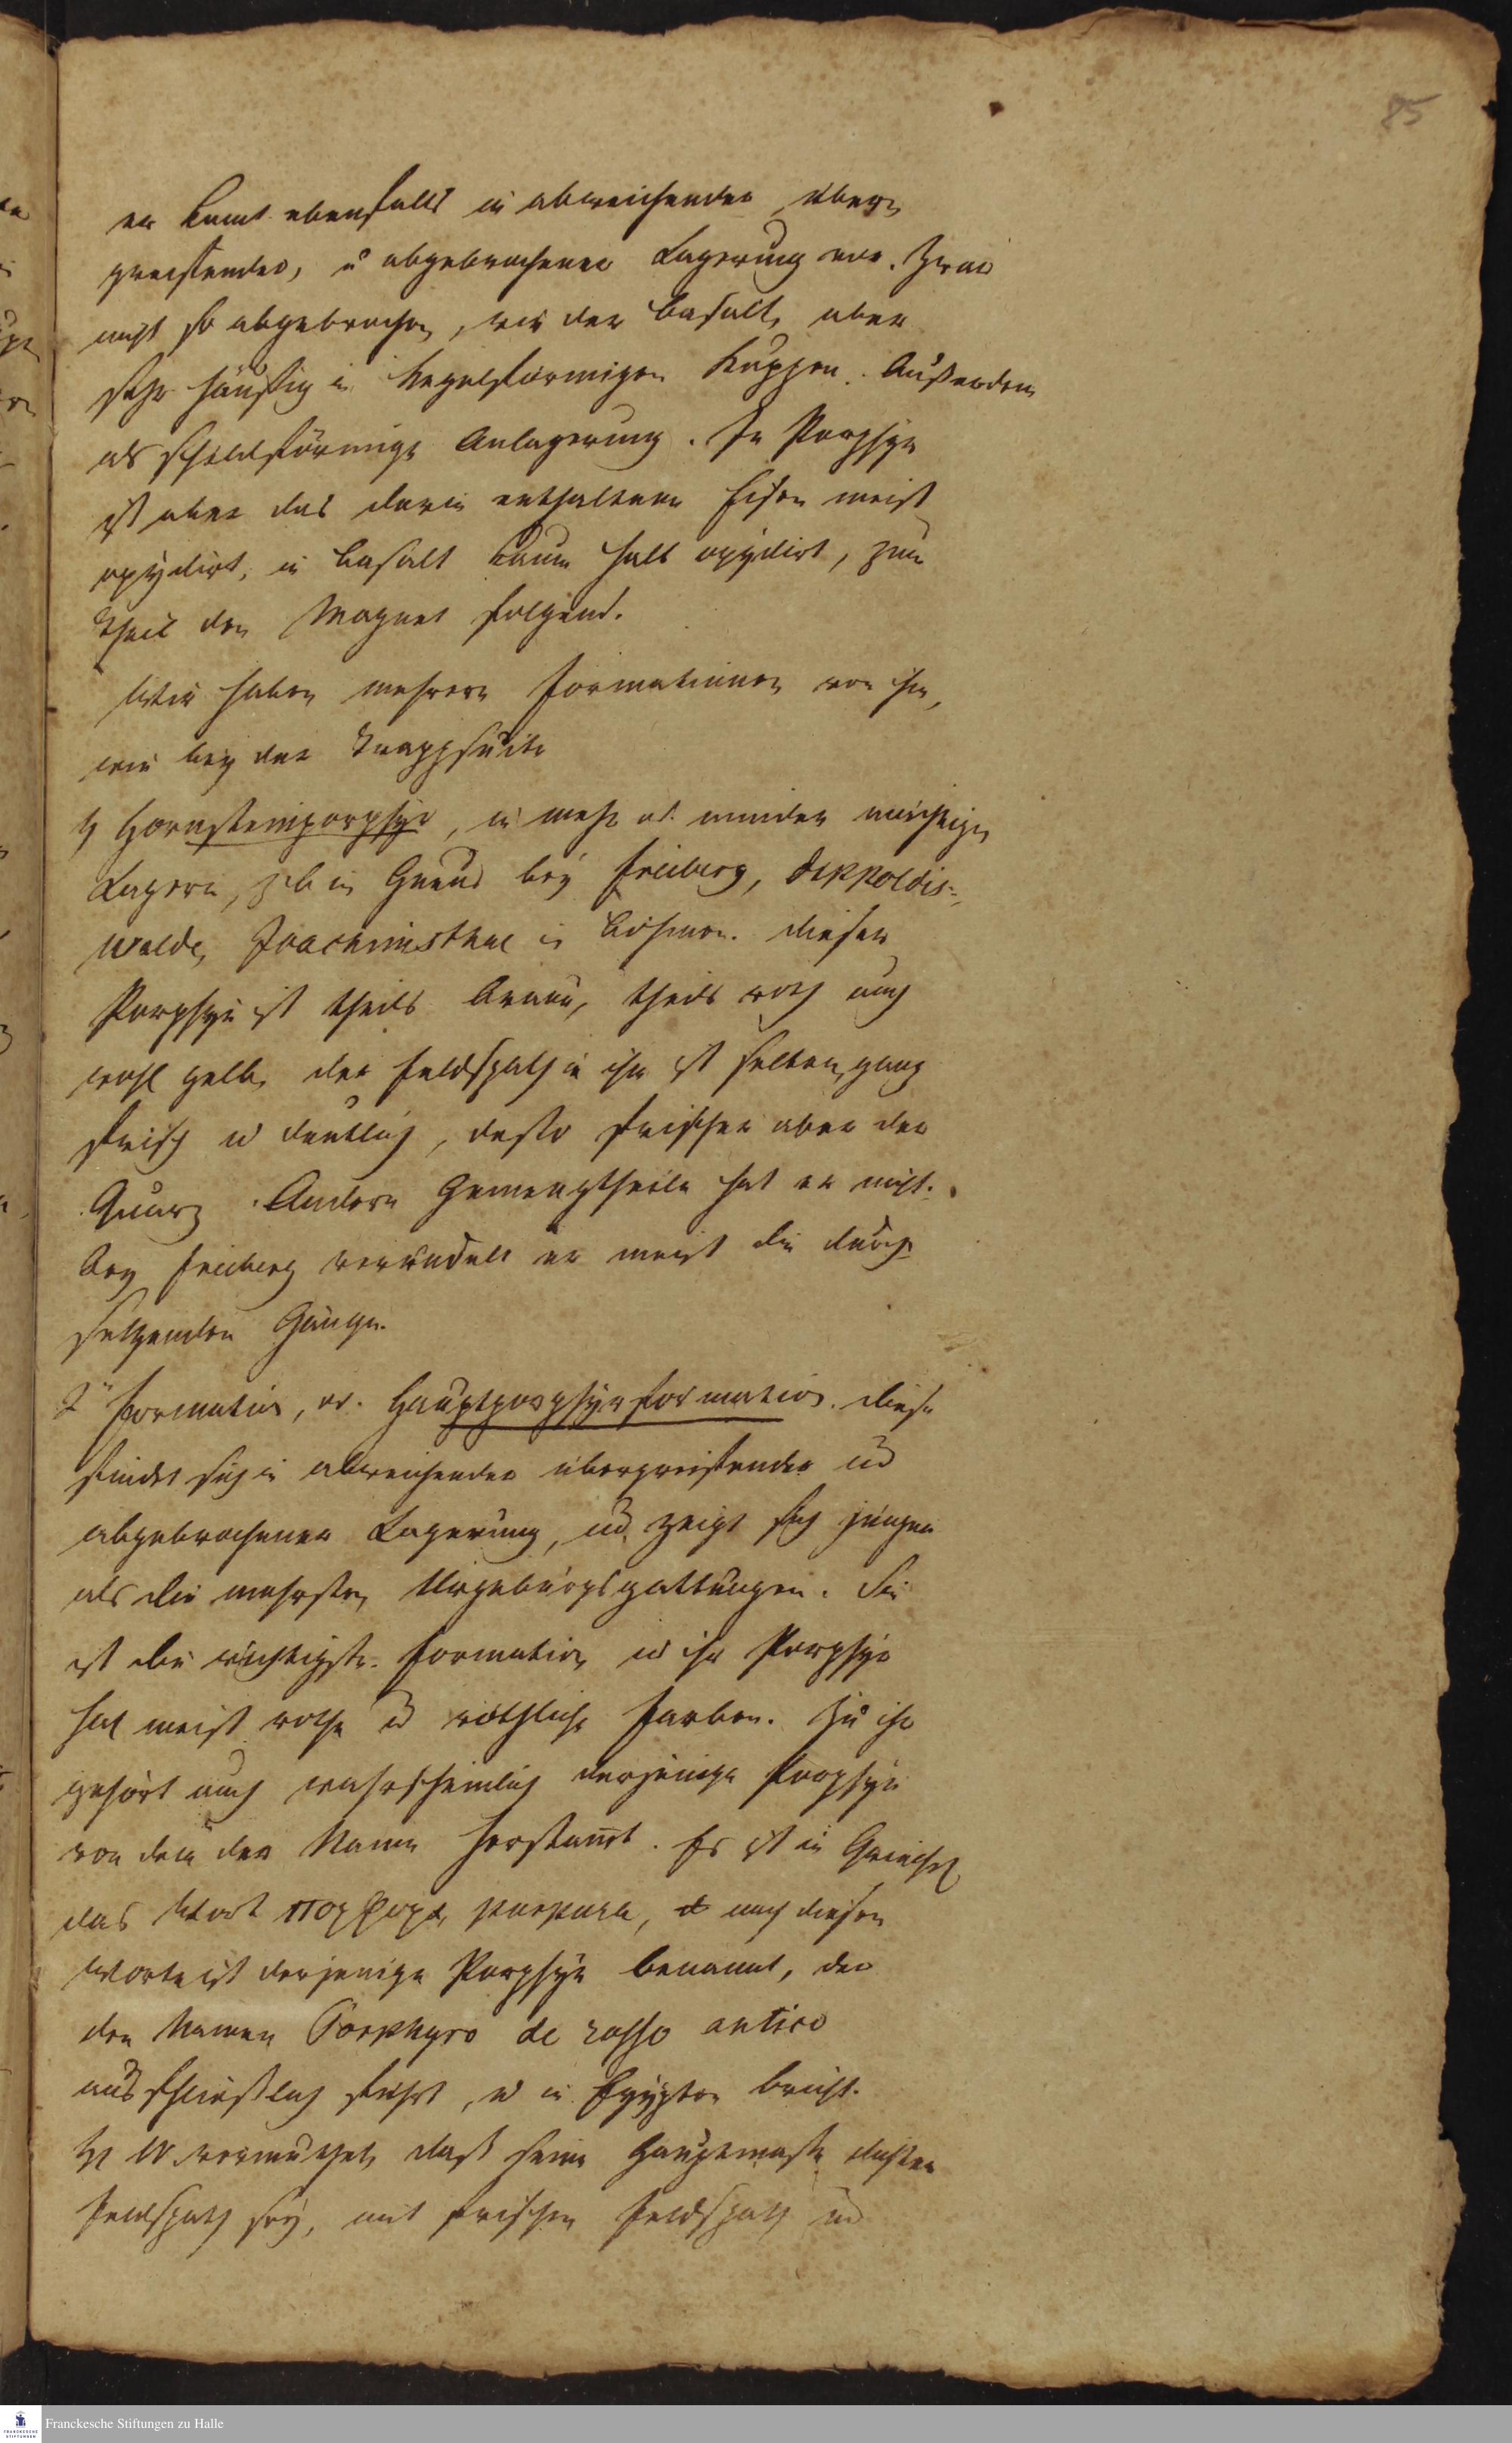 85
er komt ebenfalls in abweichender, über-
greifender, u abgebrochener Lagerung vor. Zwar
nicht so abgebrochen, wie der Basalt, aber
sehr häufig in kegelförmigen Kuppen. Außerdem
als schildförmige Anlagerung. Im Porphyr
ist aber das darin enthaltene Eisen meist
oxydirt, im Basalt kaum halb oxydirt, zum
Theil den Magnet folgend.
Wir haben mehrere Formationen von ihm,
wie bey der Trappsuite
1) Hornsteinporphyr, in mehr od. minder mächtigen
Lagern, z.b in Grund bey Freiberg, Dippoldis-
walde, Joachimsthal in Böhmen. Dieser
Porphyr ist theils braun, theils roth auch
wohl gelb, der Feldspath in ihm ist selten ganz
frisch u deutlich, desto frischer aber der
Quarz. Andere Gemengtheile hat er nicht.
Bey Freiberg veredelt er meist die durch-
setzenden Gänge.
2te Formation, od. Hauptporphyrformation. Diese
findet sich in abweichender übergreifender und
abgebrochener Lagerung, und zeigt sich jünger
als die mehrsten Urgebürgsgattungen. Sie
ist die wichtigste Formation u ihr Porphyr
hat meist rothe und röthliche Farben. Zu ihr
gehört auch wahrscheinlich derjenige Porphyr
von dem der Name herstamt. Es ist im Griechl
das Wort πορφυρα, purpura, nach diesem
Worte ist derjenige Porphyr benannt, der
den Namen Porphyro de rosso antico
ausschließlich führt, u in Egypten bricht.
H W. vermuthet, daß seine Hauptmasse dichter
Feldspath sey, mit frischen Feldspath und
Franckesche Stiftungen zu Halle